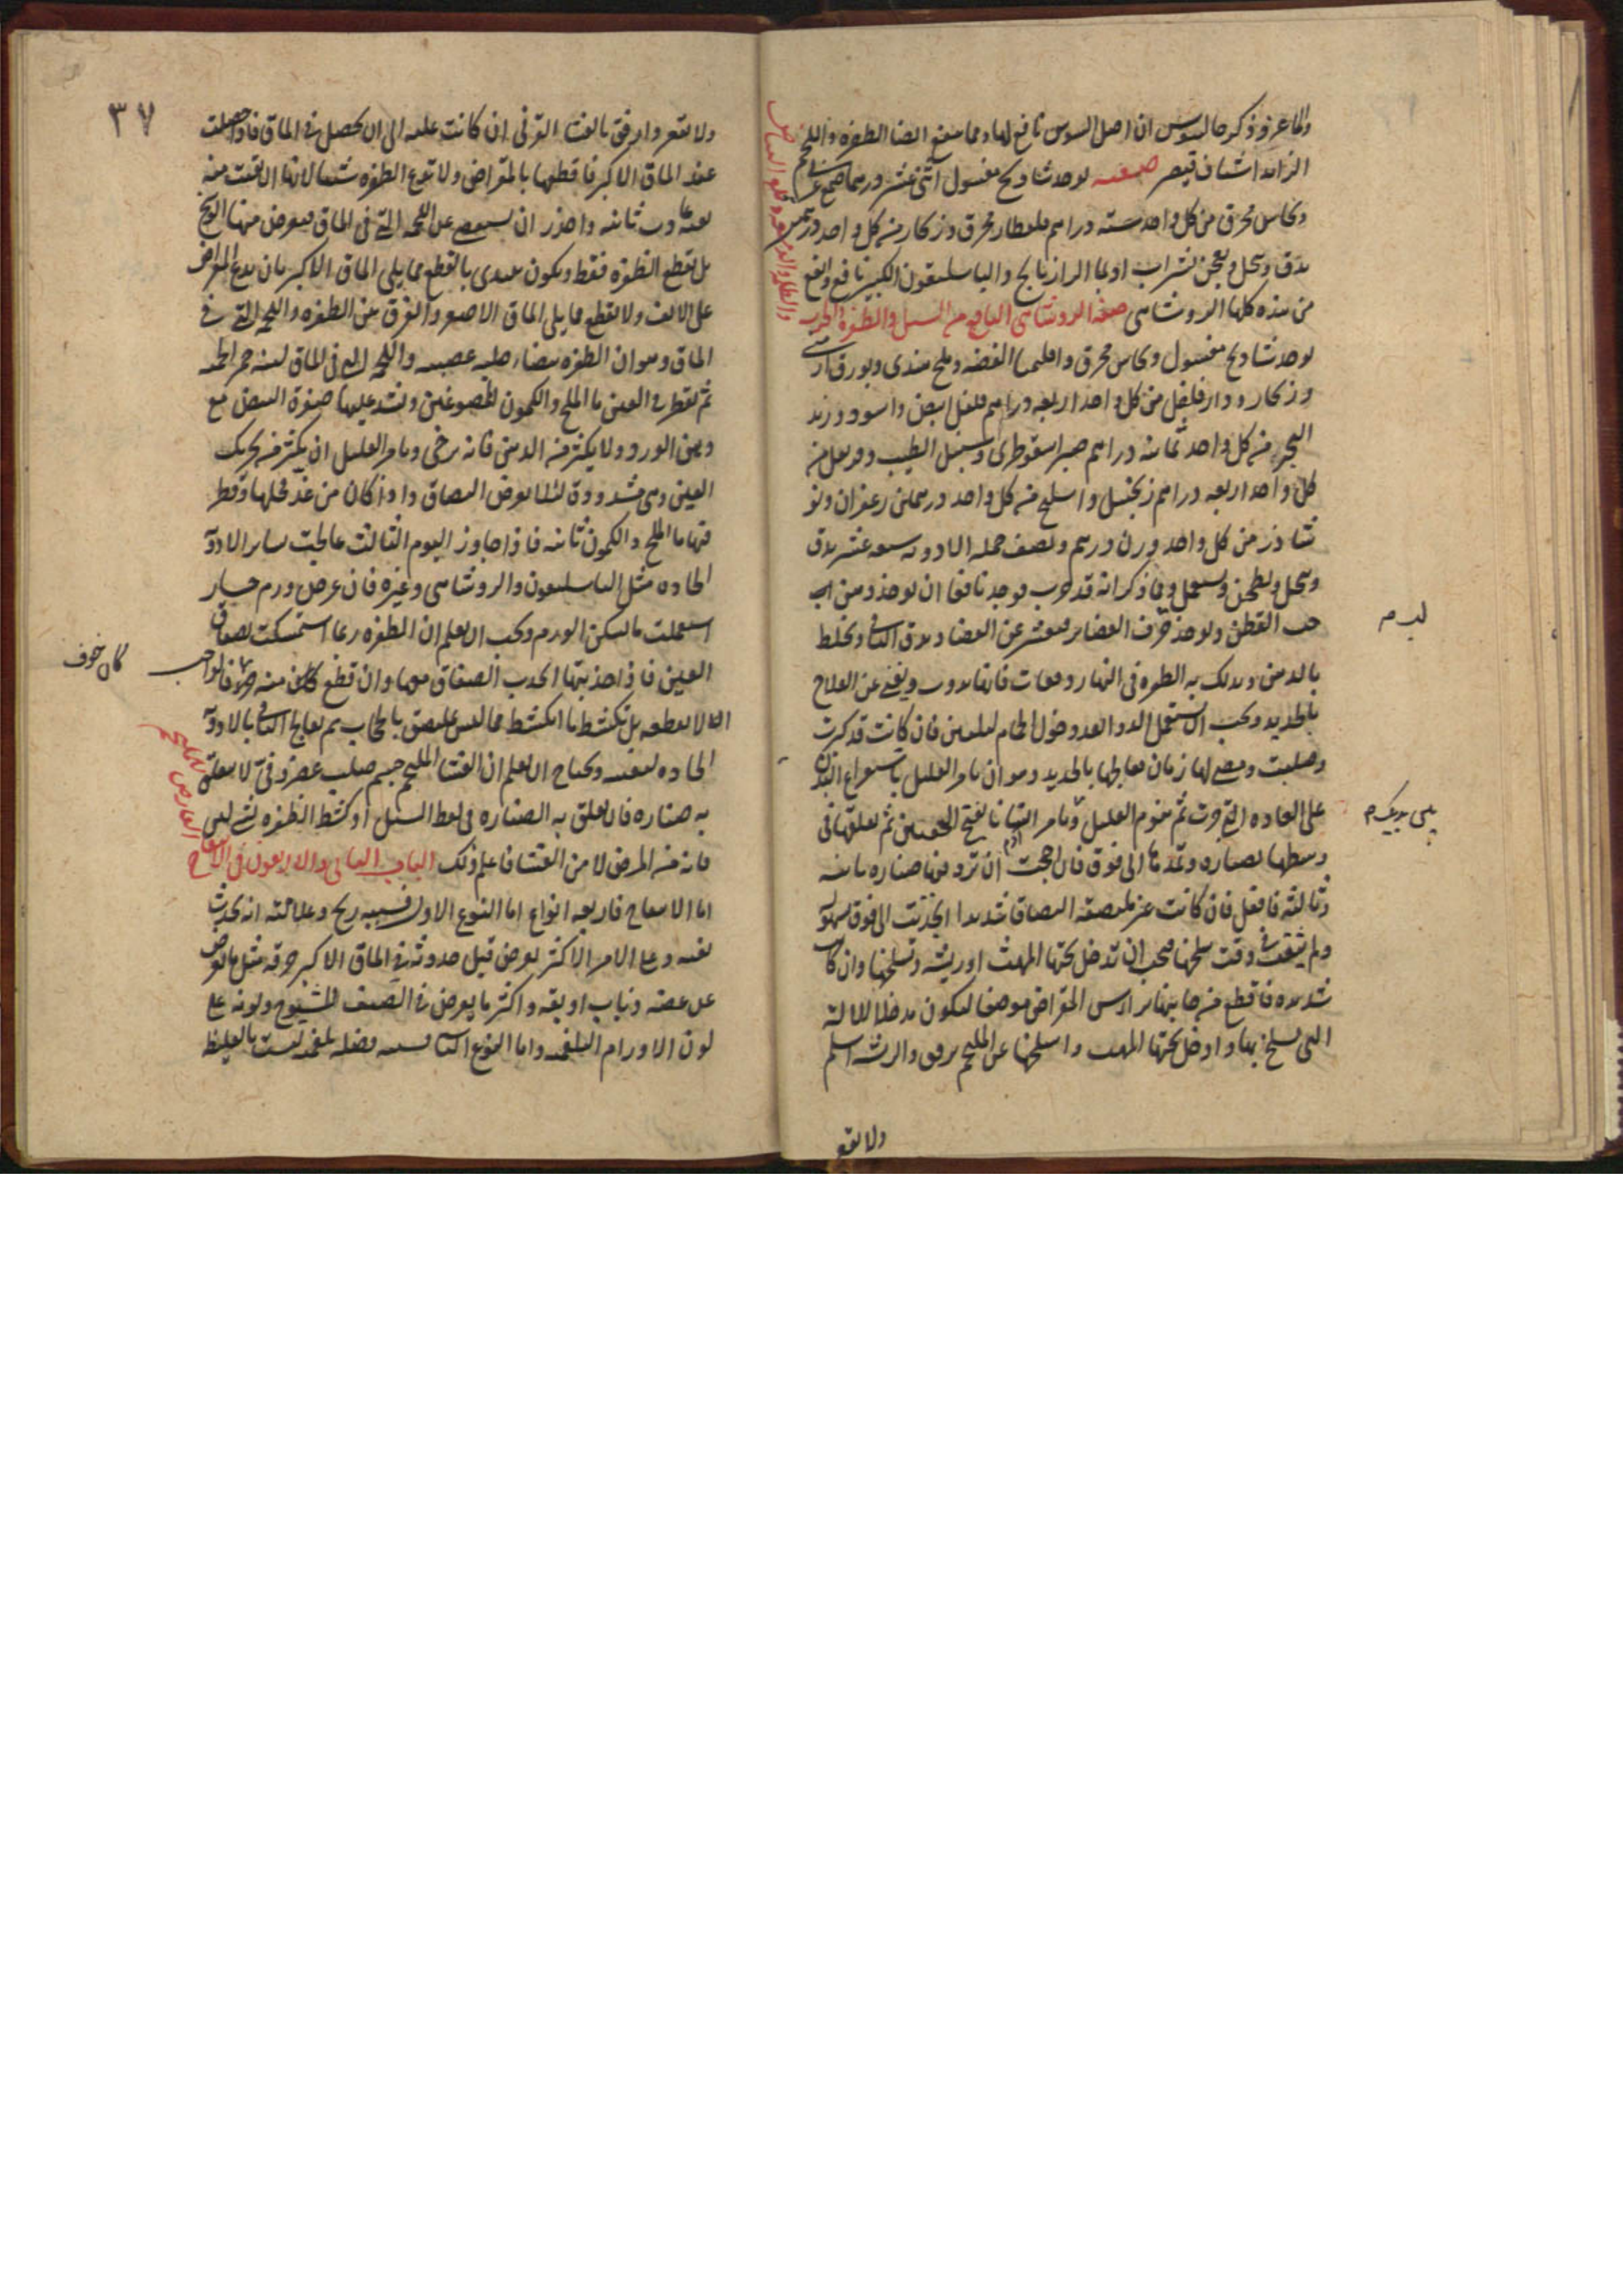 والماعز وذكر جالينوس ان اصل السوس نافع لها ومما ينفع ايضا الظفره واللحم
الزائد اشياف قيصر صفته يوخذ شاذنج مغسول اثنى عشر درهما صمغ عربى
ونحاس محرق من كل واحد سته دراهم قلقطار محرق وزنجار من كل واحد درهمين
يدق وينخل ويعجن بشراب او بما الرازيانج والباسليقون الكبير نافع وانفع
من هذه كلها الروشناى صفة الروشناى النافع من السبل والظفره والجرب
يوخذ شاذنج مغسول ونحاس محرق واقليميا الفضه وملح هندى وبورق ارمنى
وزنجار ودار فلفل من كل واحد اربعه دراهم فلفل ابيض واسود وزبد
البحر من كل واحد ثمانيه دراهم صبر اسقوطرى وسنبل الطيب وقرنفل من
كل واحد اربعه دراهم زنجبيل من كل واحد درهمين زعفران ونو
شادر من كل واحد وزن درهم ونصف جمله الادويه سبعه عشر يدق
وينخل ويطحن ويستعمل وقد ذكر انه قد جرب فوجد نافعا ان يوخذ دهن
حب القطن ويوخذ خزف الغضاير فيقشر عن الغضار ويدق الباقى ويخلط
بالدهن ويدلك به الظفره فى النهار دفعات فانها تذوب ويغنى عن العلاج
بالحديد ويجب ان يستعمل الدوا بعد دخول الحمام ليلين فان كانت قد كبرت
وصلبت ومضى لها زمان فعالجها بالحديد وهو ان تامر العليل باستفراغ البدن
على العاده التى جرت ثم تنوم العليل وتامر انسانا يفتح الجفنين ثم تعلقها فى
وسطها بصناره وتمدها الى فوق فان احتجت ان تزد فيها صناره ثانيه
وثالثه فافعل فان كانت غير ملتصقه التصاقا شديدا انجذبت الى فوق بسهوله
ولم يتبعك فى وقت سلخها فيجب ان تدخل تحتها المهت او ريشه وتسلخها وان كانت
شديده فاقطع من جانبها براس المقراض موضعا ليكون مدخلا للاله
التى تسلخ بها وادخل تحتها المهت واسلخها عن الملتحم برفق والريشه اسلم
ولا تقع
لبدم
٣٧
ولا تقعر وارفق بالغشا القرنى ان كانت عليه الى ان تحصل فى الماق فاذا حصلت
عند الماق الاكبر فاقطعها بالمقراض ولا تدع الظفره شيا لانها ان بقيت منه
بقيه عادت ثانيه واحذر ان تستقصى على اللحمه التى فى الماق فيعرض منها
بل تقطع الظفره فقط ويكون تبتدى بالقطع مما يلى الماق الاكبر بان تدع المقراض
على الانف ولا تقطع مما يلى الماق الاصغر والفرق بين الظفره واللحمه التى فى
الماق وهو ان الظفره بيضا صلبه عصبيه واللحمه التى فى الماق لينه حمرا لحميه
ثم تقطر فى العين ما الملح والكمون الممضوغين وتشد عليها صفرة البيض مع
دهن الورد ولا يكثر فيه الدهن فانه يرخى وتامر العليل ان يكثر من تحريك
العين وهى مشدوده لئلا يعرض التصاق واذا كان من غد فحلها وقطر
فيها ما الملح والكمون ثانيه فاذا جاوز اليوم الثالث عالجت بساير الادويه
الحاده مثل الباسليقون والروشناى وغيره فان عرض ورم حار
استعملت ما يسكن الورم ويجب ان يعلم ان الظفره ربما استمسكت بصفاق
العين فاذا جذبتها انجذب الصفاق معها وان قطع كان منه خوفا فالواجب
كان خوف
ان لا تقطعه بل تكشط ما انكشط مما ليس يلتصق بالحجاب ثم يعالج الباقى بالادويه
الحاده لتفنيه ويحتاج ان يعلم ان الغشا الملتحم جسم صلب غضروفى لا يتعلق
به صناره فان تعلق به الصناره فى لقط السبل او كشط الظفره لشى
فانه من المرض لا من الغشا فاعلم ذلك الباب الثانى والاربعون فى الانتفاخ
العارض للملتحم
اما الانتفاخ فاربعه انواع اما النوع الاول فسببه ريح وعلامته انه يحدث
بغته وعلى الامر الاكثر يعرض قبل حدوثه فى الماق الاكبر حرقه مثل ما يعرض
عن عضه ذباب او بقه واكثر ما يعرض فى الصيف للشيوخ ولونه على
لون الاورام البلغميه واما النوع الثانى فسببه فضله بلغميه ليست بالغليظه